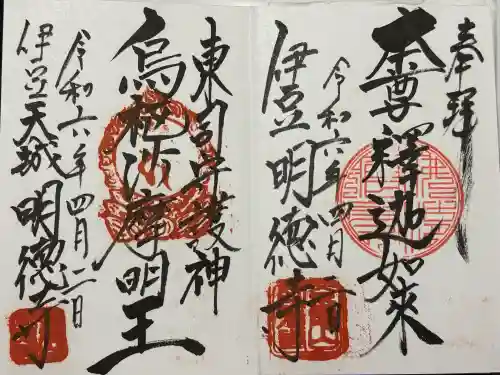 奉拝
本尊釋迦如來
令和六年四月二日
伊豆明徳寺
東司守護神
烏枢沙摩明王
令和六年四月二日
伊豆天城明徳寺